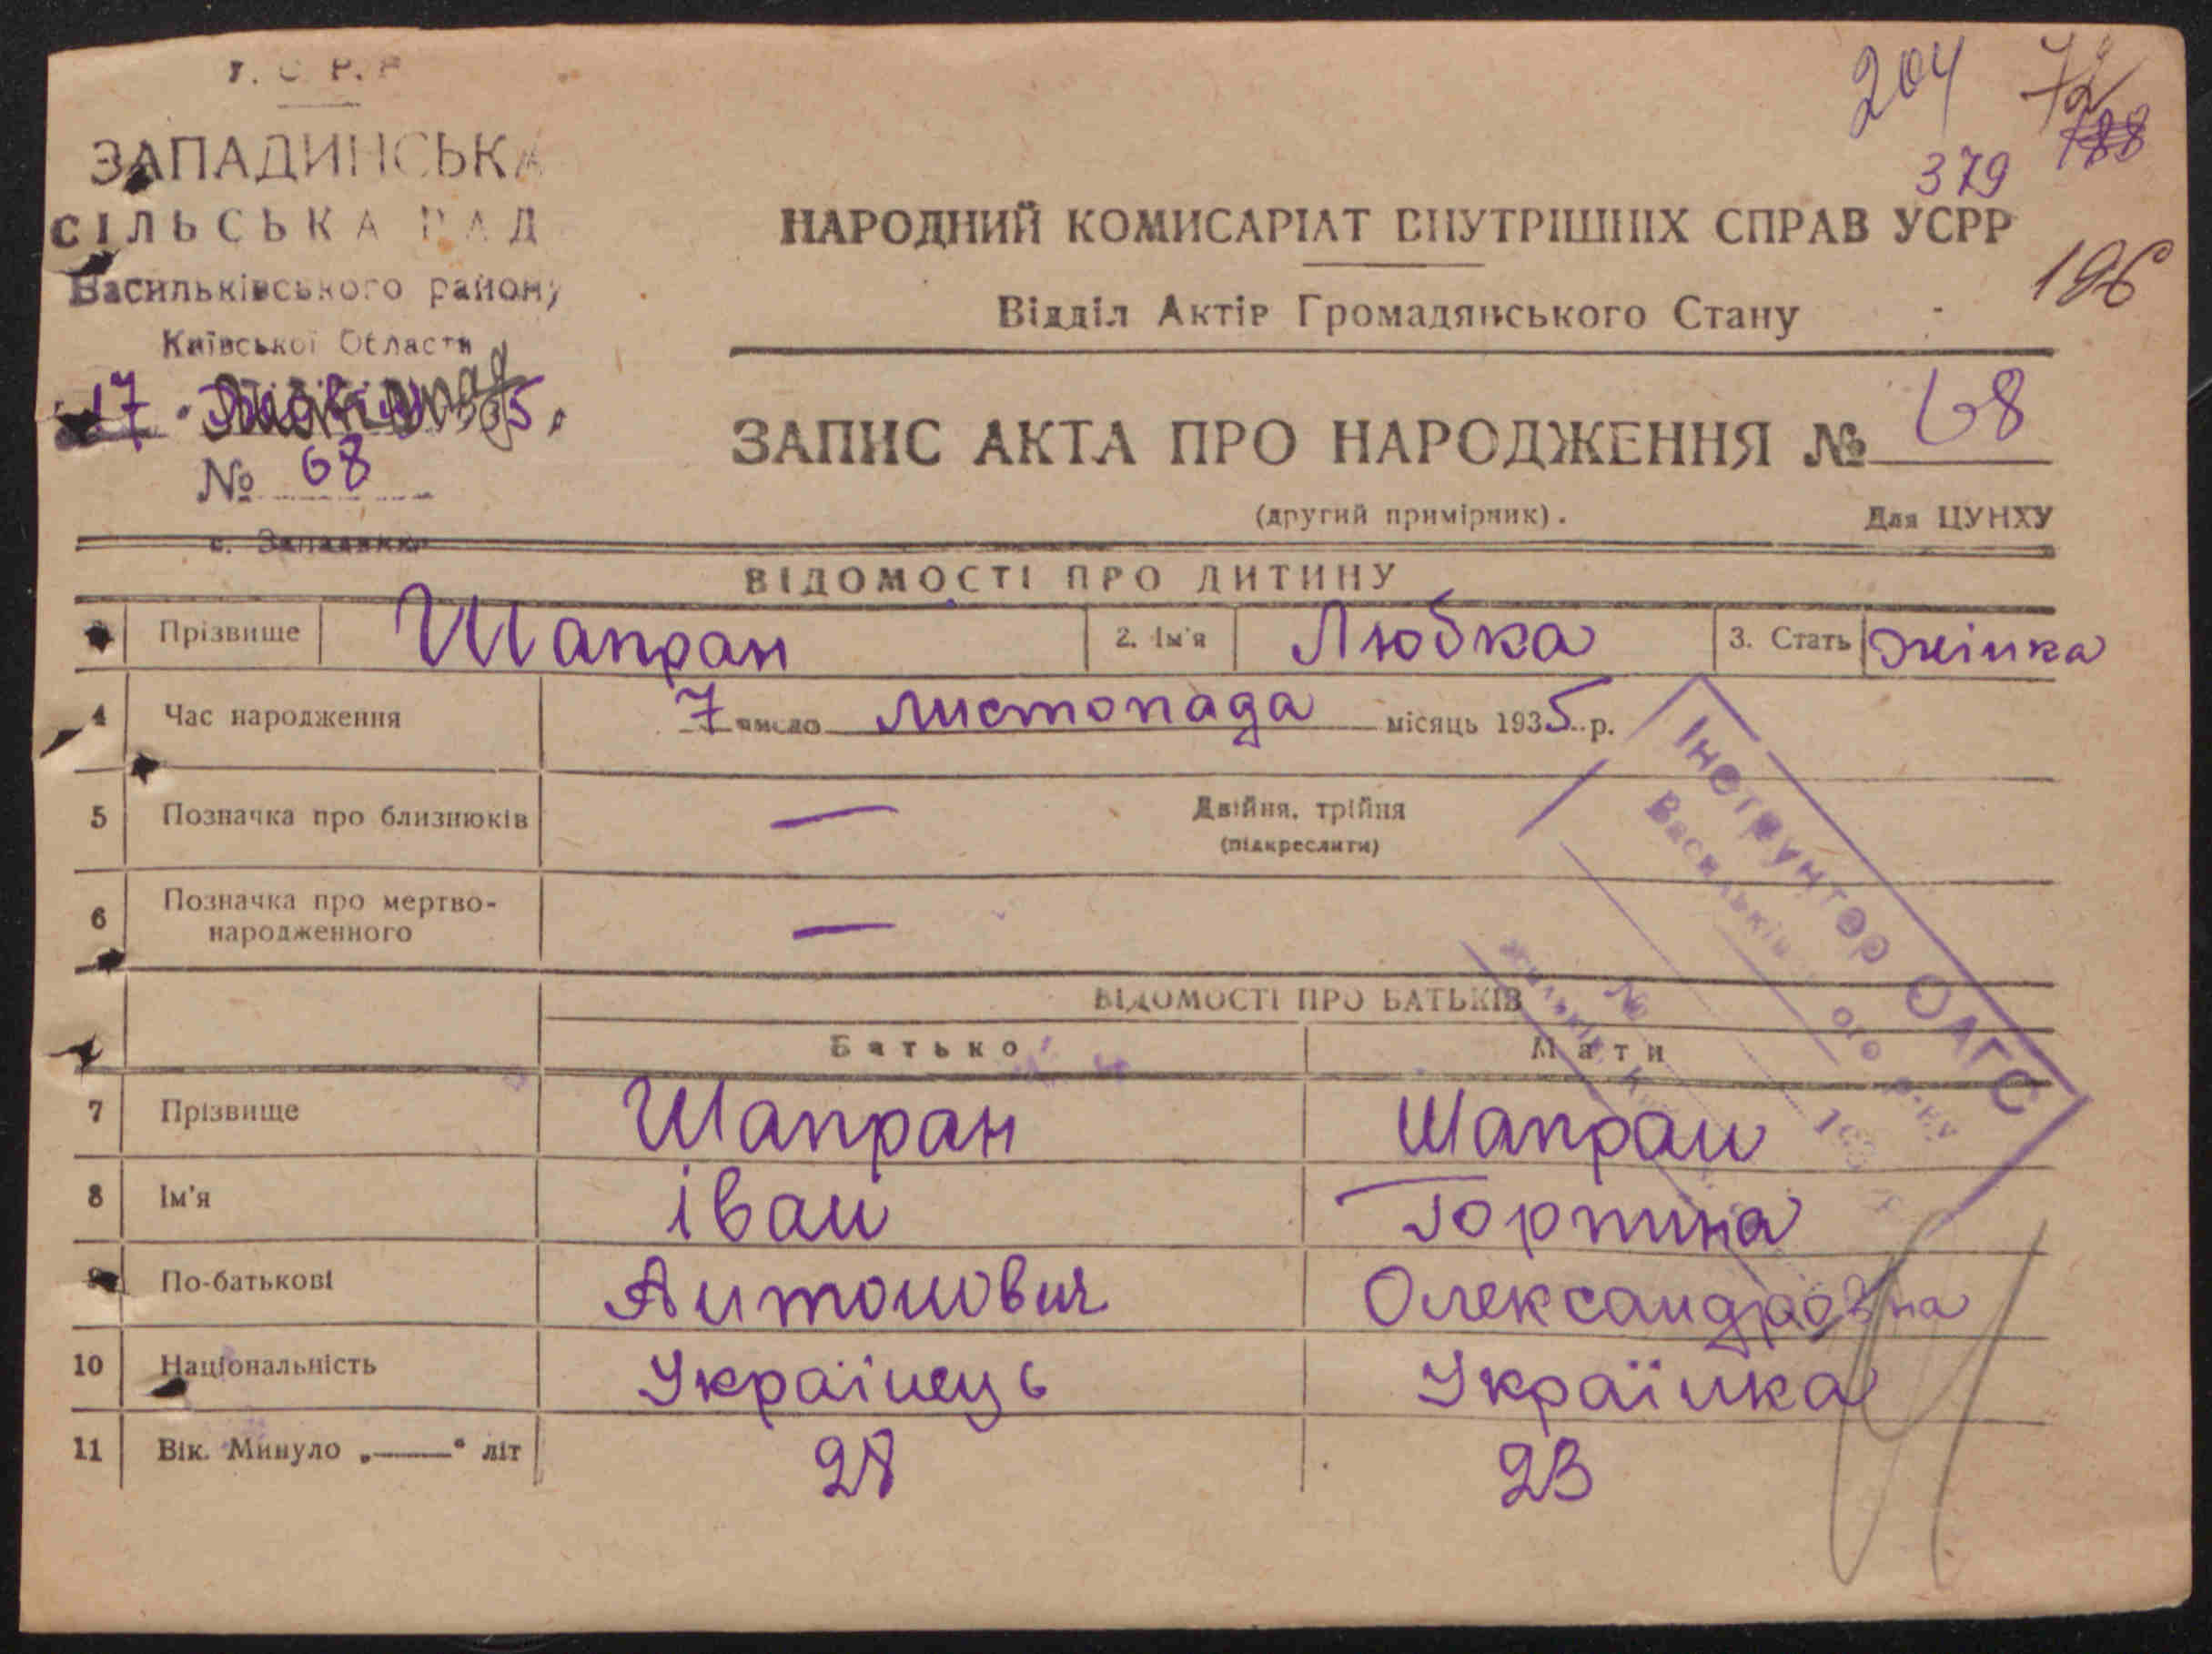 ЗАПАДИНСЬКА
СІЛЬСЬКА РАД
Васильківського району
Київської Области
17
5
№ 68
с. Западинка
204 72
379 188
196
НАРОДНИЙ КОМИСАРІАТ ВНУТРІШНІХ СПРАВ УСРР
Відділ Актів Громадянського Стану
ЗАПИС АКТА ПРО НАРОДЖЕННЯ № 68
(другий примірник). Для ЦУНХУ
ВІДОМОСТІ ПРО ДИТИНУ
Прізвище Шапран 2. Ім'я Любка 3. Стать жінка
4 Час народження 7 число листопада місяць 1935 р.
5 Позначка про близнюків — Двійня, трійня
(підкреслити)
6 Позначка про мертво-
народженного —
ВІДОМОСТІ ПРО БАТЬКІВ
Батько Мати
7 Прізвище Шапран Шапран
8 Ім'я Іван Горпина
9 По-батькові Антонович Олександровна
10 Національність Українець Українка
11 Вік. Минуло „——“ літ 28 23
Інструктор ОАГС
Васильків ого р-ну
№ 193